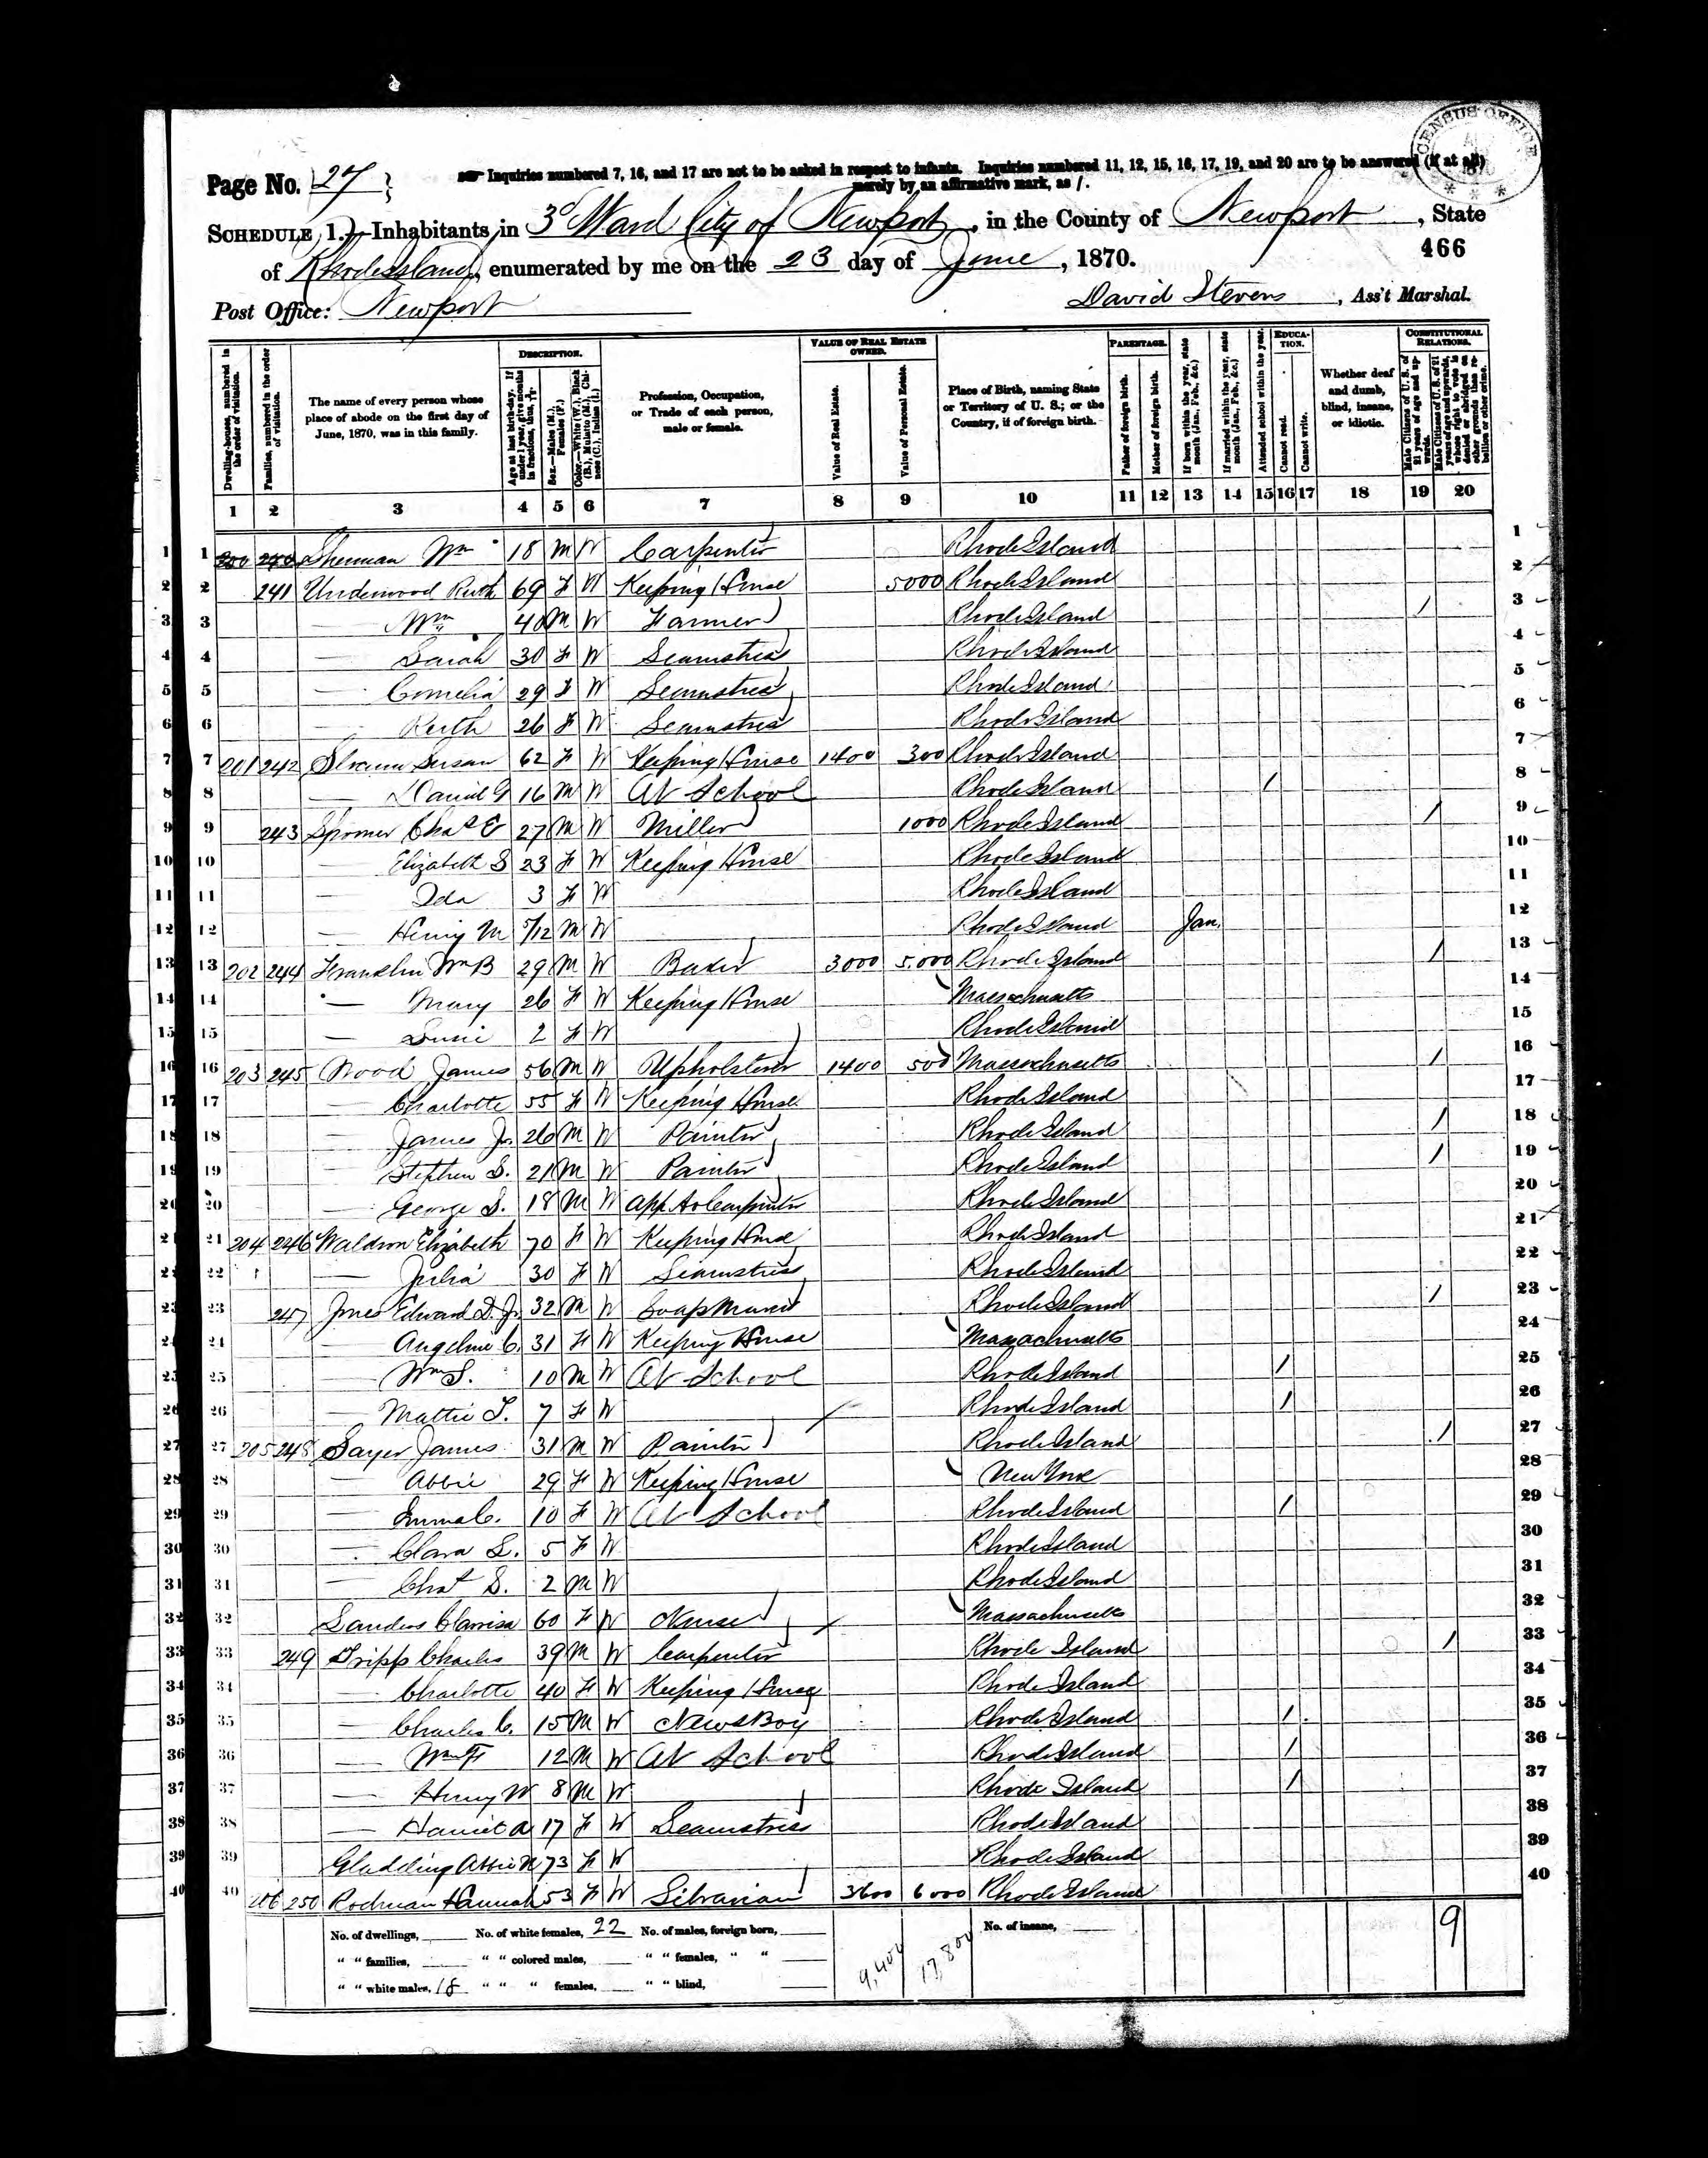 Page No. 27
Inquiries numbered 7, 16, and 17 are not to be asked in respect to infants. Inquiries numbered 11, 12, 15, 16, 17, 19, and 20 are to be answered (if at all)
merely by an affirmative mark, as /.
CENSUS OFFICE
SCHEDULE 1.—Inhabitants in 3d Ward City of Newport, in the County of Newport, State
of Rhode Island, enumerated by me on the 23 day of June, 1870.
466
Post Office: Newport
David Stevens, Ass't Marshal.
Dwelling-houses, numbered in the order of visitation.
Families, numbered in the order of visitation.
The name of every person whose place of abode on the first day of June, 1870, was in this family.
DESCRIPTION.
Age at last birth-day. If under 1 year, give months in fractions, thus, 3/12
Sex.—Males (M.), Females (F.)
Color.—White (W.), Black (B.), Mulatto (M.), Chinese (C.), Indian (I.)
Profession, Occupation, or Trade of each person, male or female.
VALUE OF REAL ESTATE OWNED.
Value of Real Estate.
Value of Personal Estate.
Place of Birth, naming State or Territory of U. S.; or the Country, if of foreign birth.
PARENTAGE.
Father of foreign birth.
Mother of foreign birth.
If born within the year, state month (Jan., Feb., &c.)
If married within the year, state month (Jan., Feb., &c.)
Attended school within the year.
EDUCATION.
Cannot read.
Cannot write.
Whether deaf and dumb, blind, insane, or idiotic.
CONSTITUTIONAL RELATIONS.
Male Citizens of U. S. of 21 years of age and upwards.
Male Citizens of U. S. of 21 years of age and upwards, whose right to vote is denied or abridged on other grounds than rebellion or other crime.
1 2 3 4 5 6 7 8 9 10 11 12 13 14 15 16 17 18 19 20
1 200 240 Sherman Wm 18 M W Carpenter Rhode Island 1
2 241 Underwood Ruth 69 F W Keeping House 5000 Rhode Island 2
3 — Wm 40 M W Farmer Rhode Island / 3
4 Sarah 30 F W Seamstress Rhode Island 4
5 — Cornelia 29 F W Seamstress Rhode Island 5
6 — Ruth 26 F W Seamstress Rhode Island 6
7 201 242 Susan 62 F W Keeping House 1400 300 Rhode Island 7
8 — Daniel G 16 M W At School Rhode Island / 8
9 243 Spooner Chas E 27 M W Miller 1000 Rhode Island / 9
10 — Elizabeth S 23 F W Keeping House Rhode Island 10
11 — Ida 3 F W Rhode Island 11
12 — Henry M 5/12 M W Rhode Island Jan. 12
13 202 244 Franklin Wm B 29 M W Baker 3000 5.000 Rhode Island / 13
14 — Mary 26 F W Keeping House Massachusetts 14
15 — Susie 2 F W Rhode Island 15
16 203 245 Wood James 56 M W Upholsterer 1400 500 Massachusetts / 16
17 — Charlotte 55 F W Keeping House Rhode Island 17
18 — James Jr. 26 M W Painter Rhode Island / 18
19 — Stephen S. 21 M W Painter Rhode Island / 19
20 — George S. 18 M W App. to Carpenter Rhode Island 20
21 204 246 Waldron Elizabeth 70 F W Keeping House Rhode Island 21
22 — Julia 30 F W Seamstress Rhode Island 22
23 247 Jones Edward D. Jr. 32 M W Rhode Island / 23
24 — Angeline C. 31 F W Keeping House Massachusetts 24
25 — Wm S. 10 M W At School Rhode Island / 25
26 — Mattie T. 7 F W Rhode Island / 26
27 205 248 Sayer James 31 M W Painter Rhode Island / 27
28 — Abbie 29 F W Keeping House New York 28
29 — Emma C. 10 F W At School Rhode Island / 29
30 — Clara L. 5 F W Rhode Island 30
31 — Chas S. 2 M W Rhode Island 31
32 Sanders Clarrisa 60 F W Nurse Massachusetts 32
33 249 Tripp Charles 39 M W Carpenter Rhode Island / 33
34 — Charlotte 40 F W Keeping House Rhode Island 34
35 — Charles C. 15 M W News Boy Rhode Island / 35
36 — Wm F 12 M W At School Rhode Island / 36
37 — Henry W 8 M W Rhode Island / 37
38 — Harriet A 17 F W Seamstress Rhode Island 38
39 Gladding Abbie N 73 F W Rhode Island 39
40 206 250 Rodman Hannah 53 F W Librarian 3600 6000 Rhode Island 40
No. of dwellings, No. of white females, 22 No. of males, foreign born, 9,400 17,800 No. of insane, 9
" " families, " " colored males, " " females, " "
" " white males, 18 " " " females, " " blind,